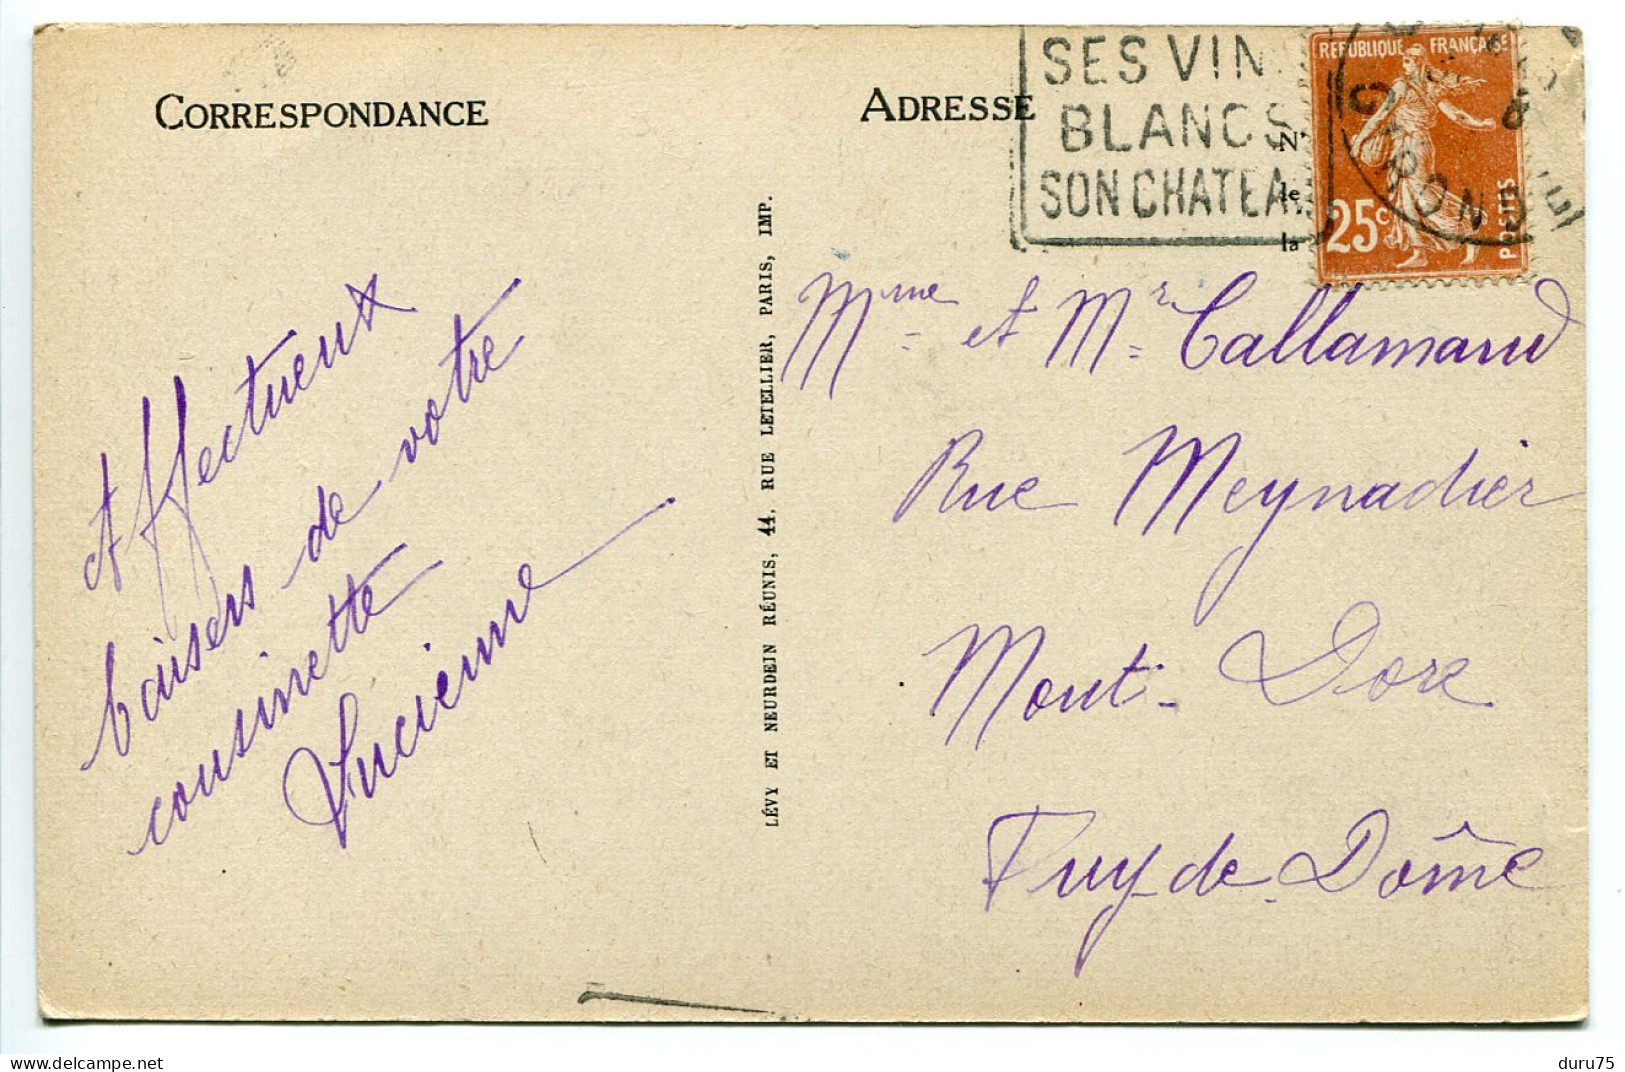 CORRESPONDANCE
ADRESSE
SES VIN
BLANCS
SON CHATEA
N'
le
la
REPUBLIQUE FRANÇAISE
25c
POSTES
GIRONDE
Affectueux
baisers de votre
cousinette
Lucienne
LÉVY ET NEURDEIN RÉUNIS, 44, RUE LETELLIER, PARIS, IMP.
Mme et Mr Callamand
Rue Meynadier
Mont-Dore
Puy-de-Dôme
duru75